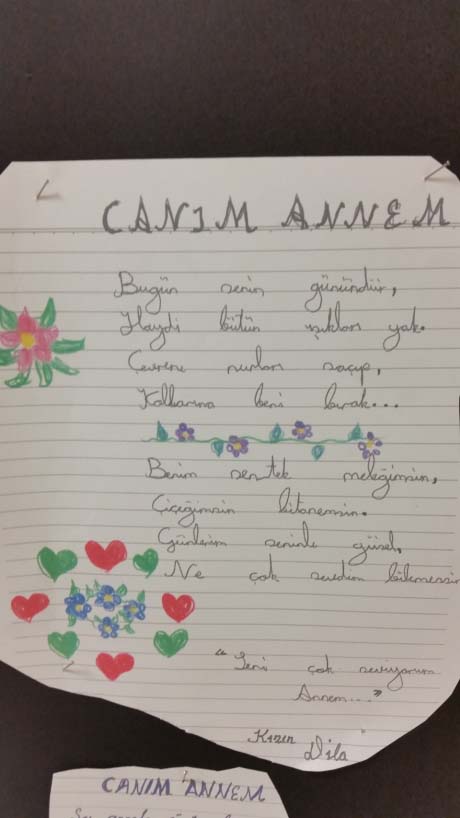 CANIM ANNEM
Bugün senin günündür,
Haydi bütün ışıkları yak.
Çevrene nurları saçıp,
Kollarına beni bırak...
Benim sen tek meleğimsin,
Çiçeğimsin bitanemsin.
Günlerim seninle güzel,
Ne çok sevdim bilmezsin
"Seni çok seviyorum
Annem..."
Kızın
Dila
CANIM ANNEM